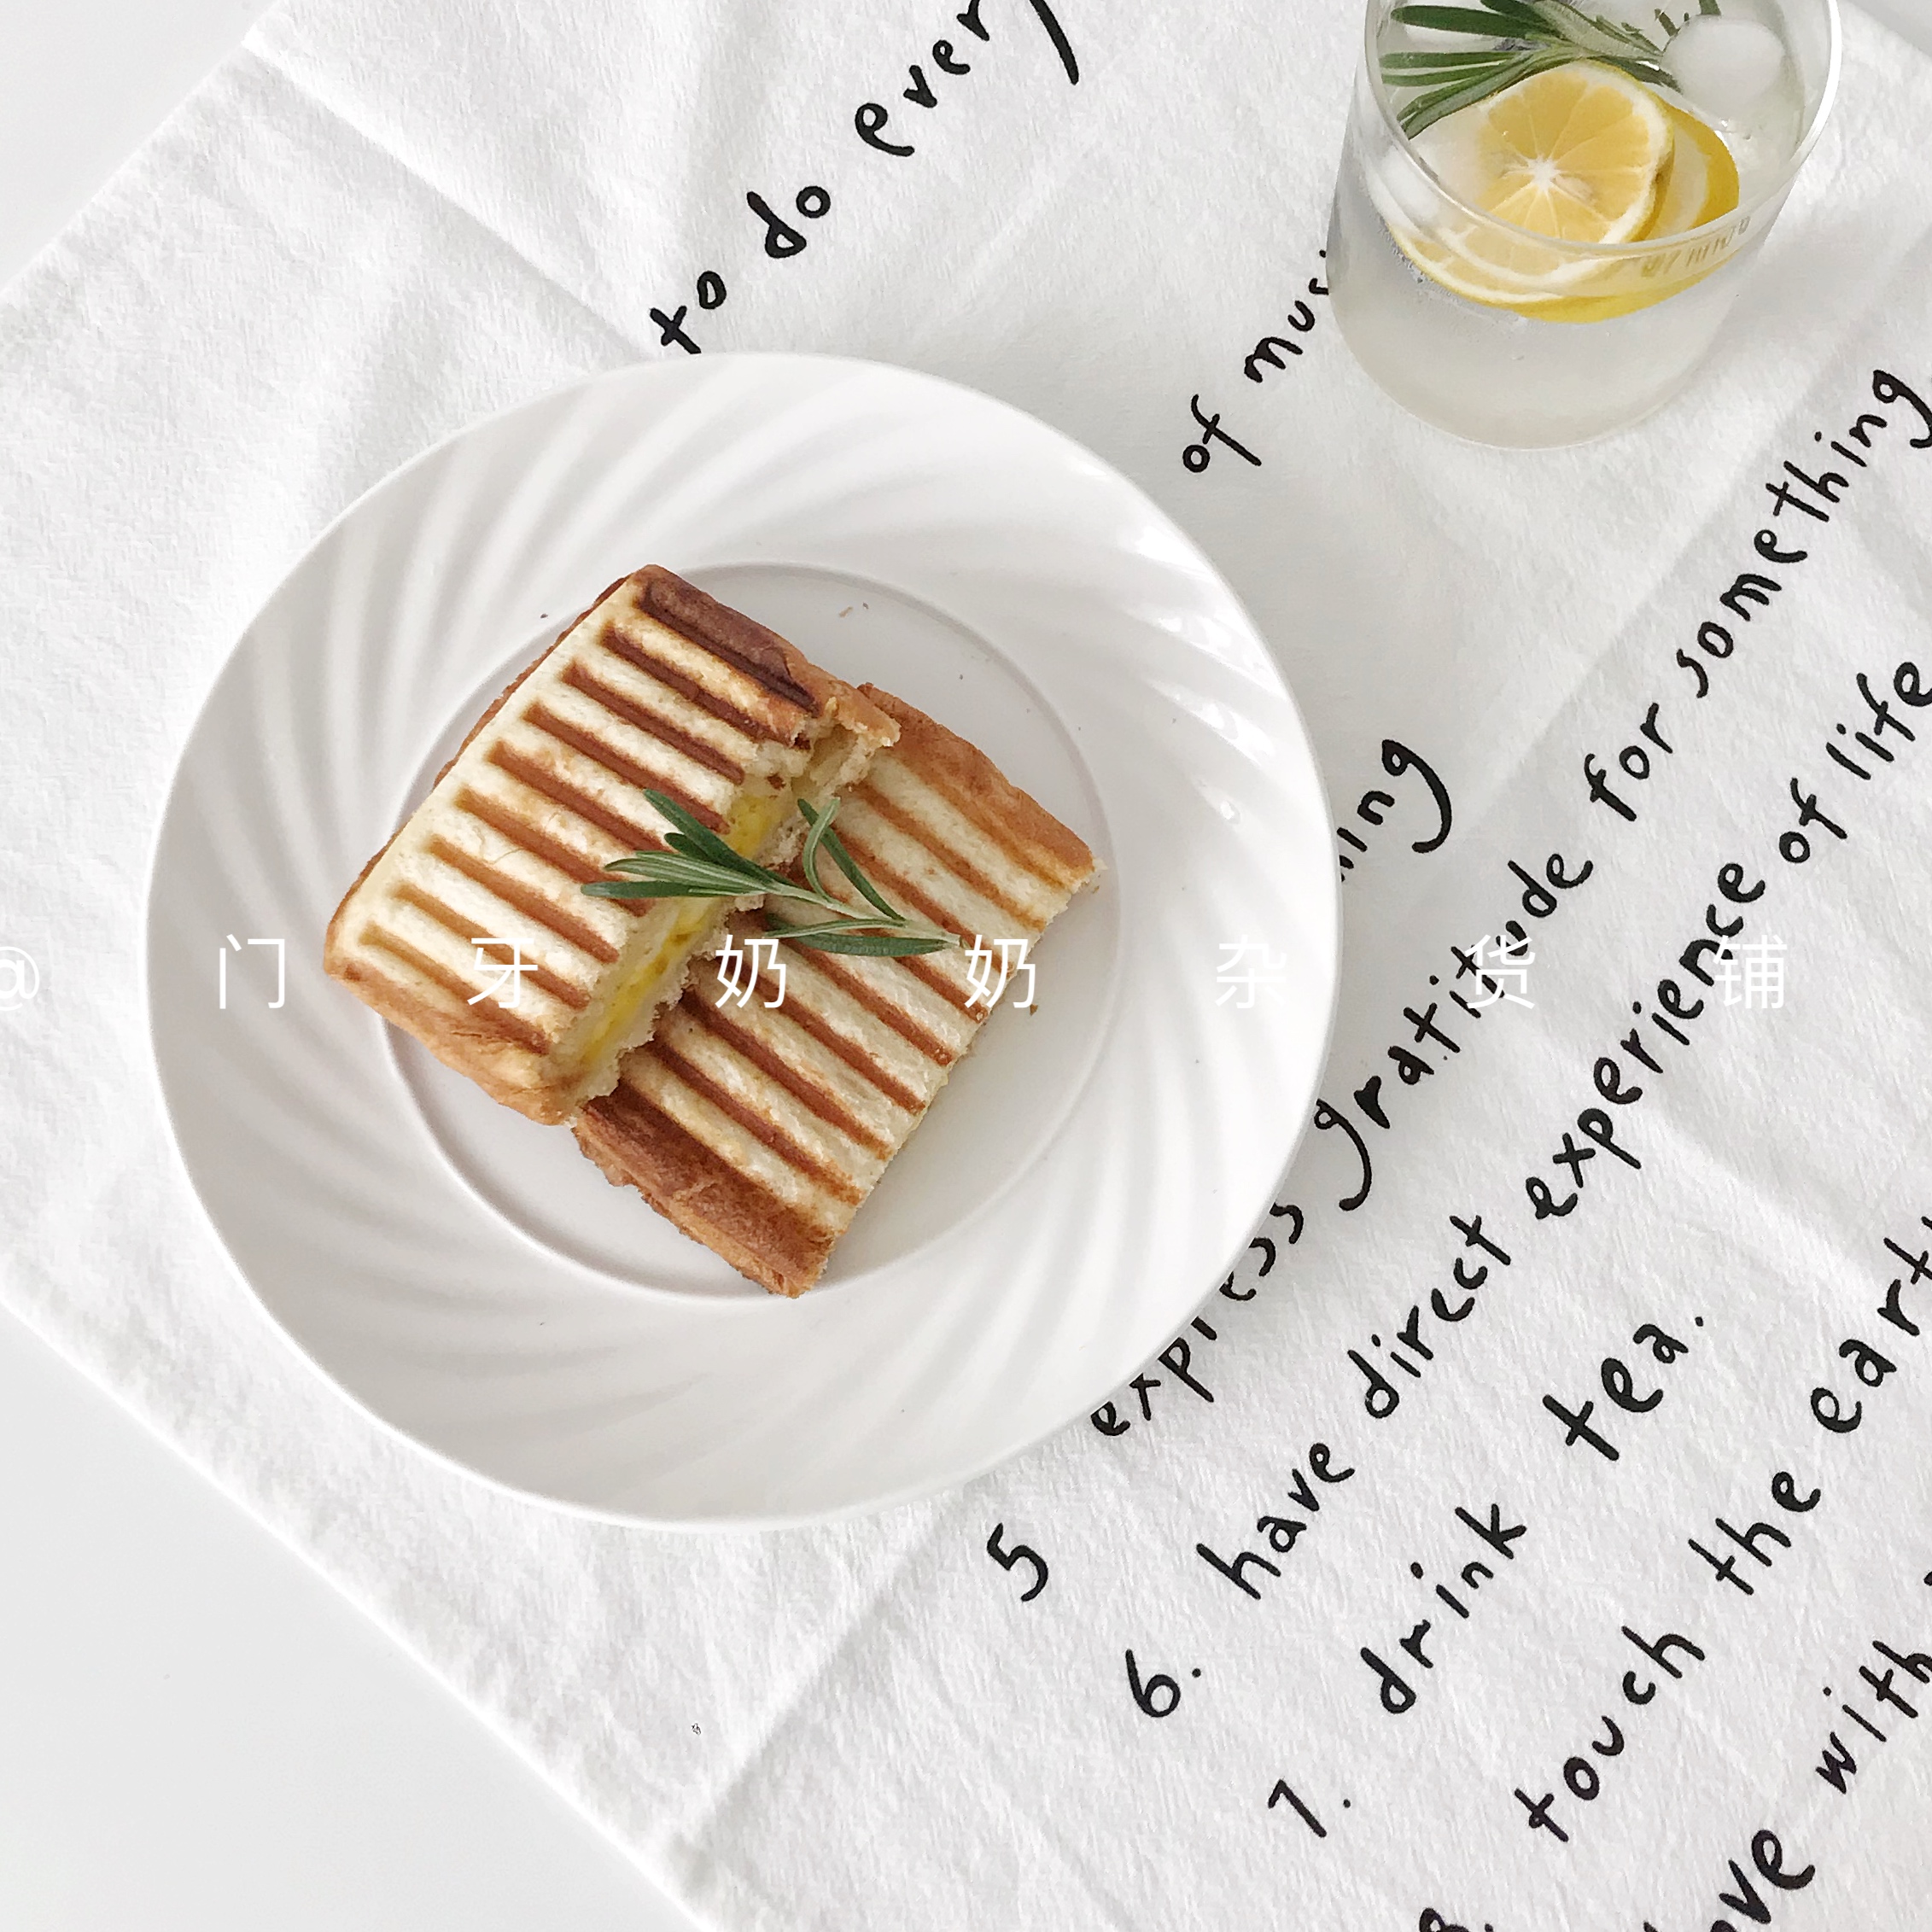 to do every
of mus
hing
5 express gratitude for something
6. have direct experience of life
7. drink tea.
8. touch the eart
ve with
@门牙奶奶杂货铺